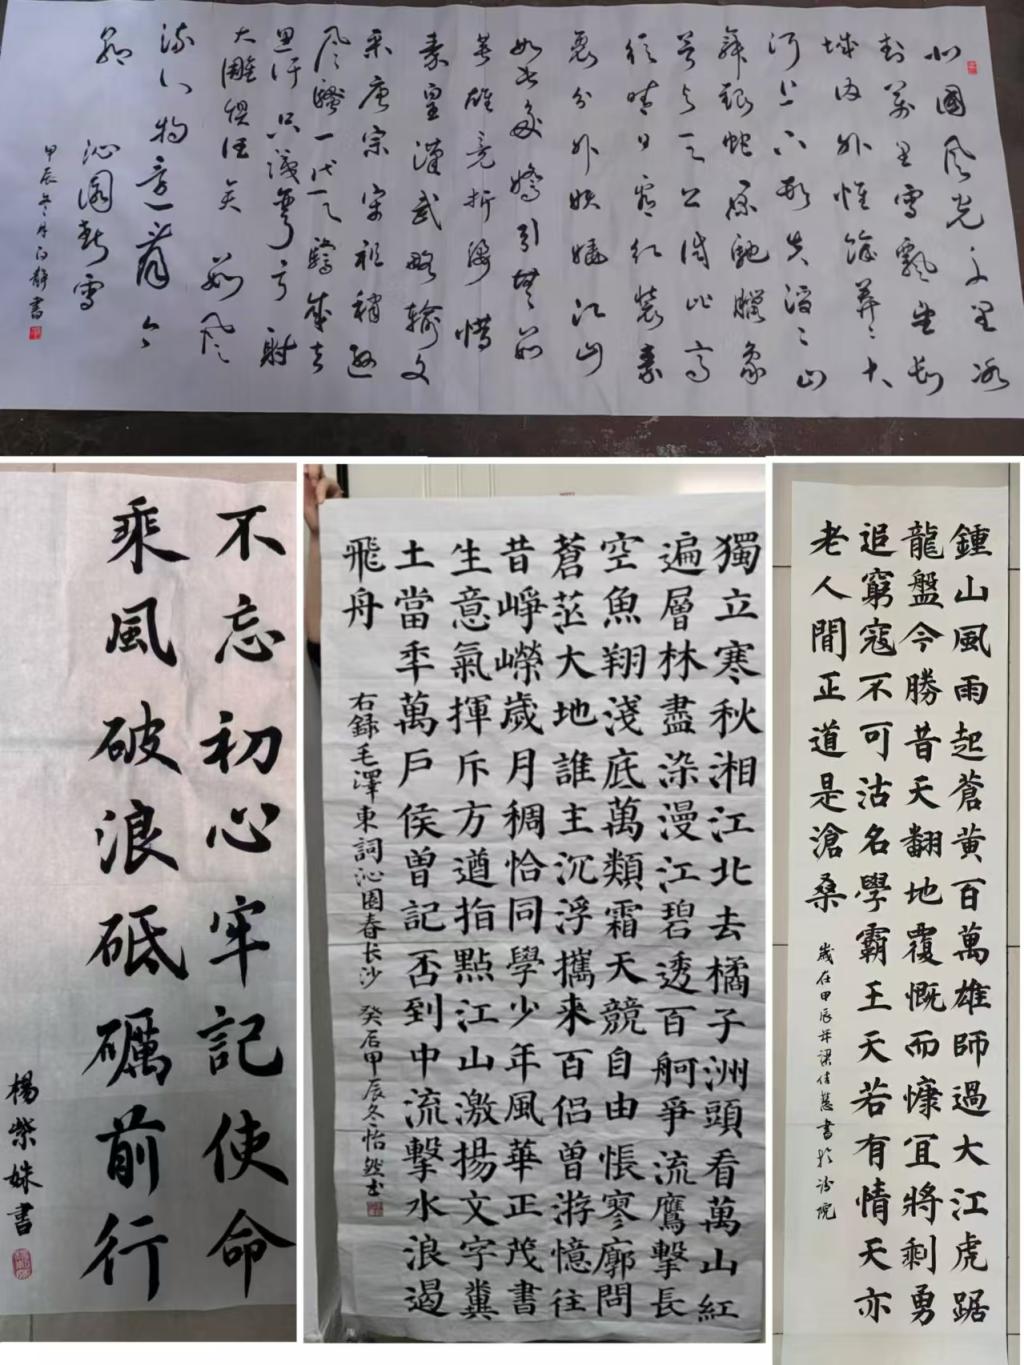 北國風光千里冰
封萬里雪飄望長
城內外惟餘莽々大
河上下頓失滔々山
舞銀蛇原馳臘象
欲与天公試比高
須晴日看紅裝素
裹分外妖嬈江山
如此多嬌引無數
英雄竞折腰惜
秦皇漢武略輸文
采唐宗宋祖稍遜
風騷一代天驕成吉
思汗只識彎弓射
大雕俱往矣數風
流人物還看今
朝
沁園春雪
甲辰冬月静書
不忘初心牢記使命
乘風破浪砥礪前行
楊紫姝書
獨立寒秋湘江北去橘子洲頭看萬山紅
遍層林盡染漫江碧透百舸爭流鷹擊長
空魚翔淺底萬類霜天競自由悵寥廓問
蒼茫大地誰主沉浮攜來百侶曾游憶往
昔崢嶸歲月稠恰同學少年風華正茂書
生意氣揮斥方遒指點江山激揚文字糞
土當年萬戶侯曾記否到中流擊水浪遏
飛舟
右録毛澤東詞沁園春长沙 癸后甲辰冬怡然书
鍾山風雨起蒼黄百萬雄師過大江虎踞
龍盤今勝昔天翻地覆慨而慷宜將剩勇
追窮寇不可沽名學霸王天若有情天亦
老人間正道是滄桑
歲在甲辰年梁佳慧書於院